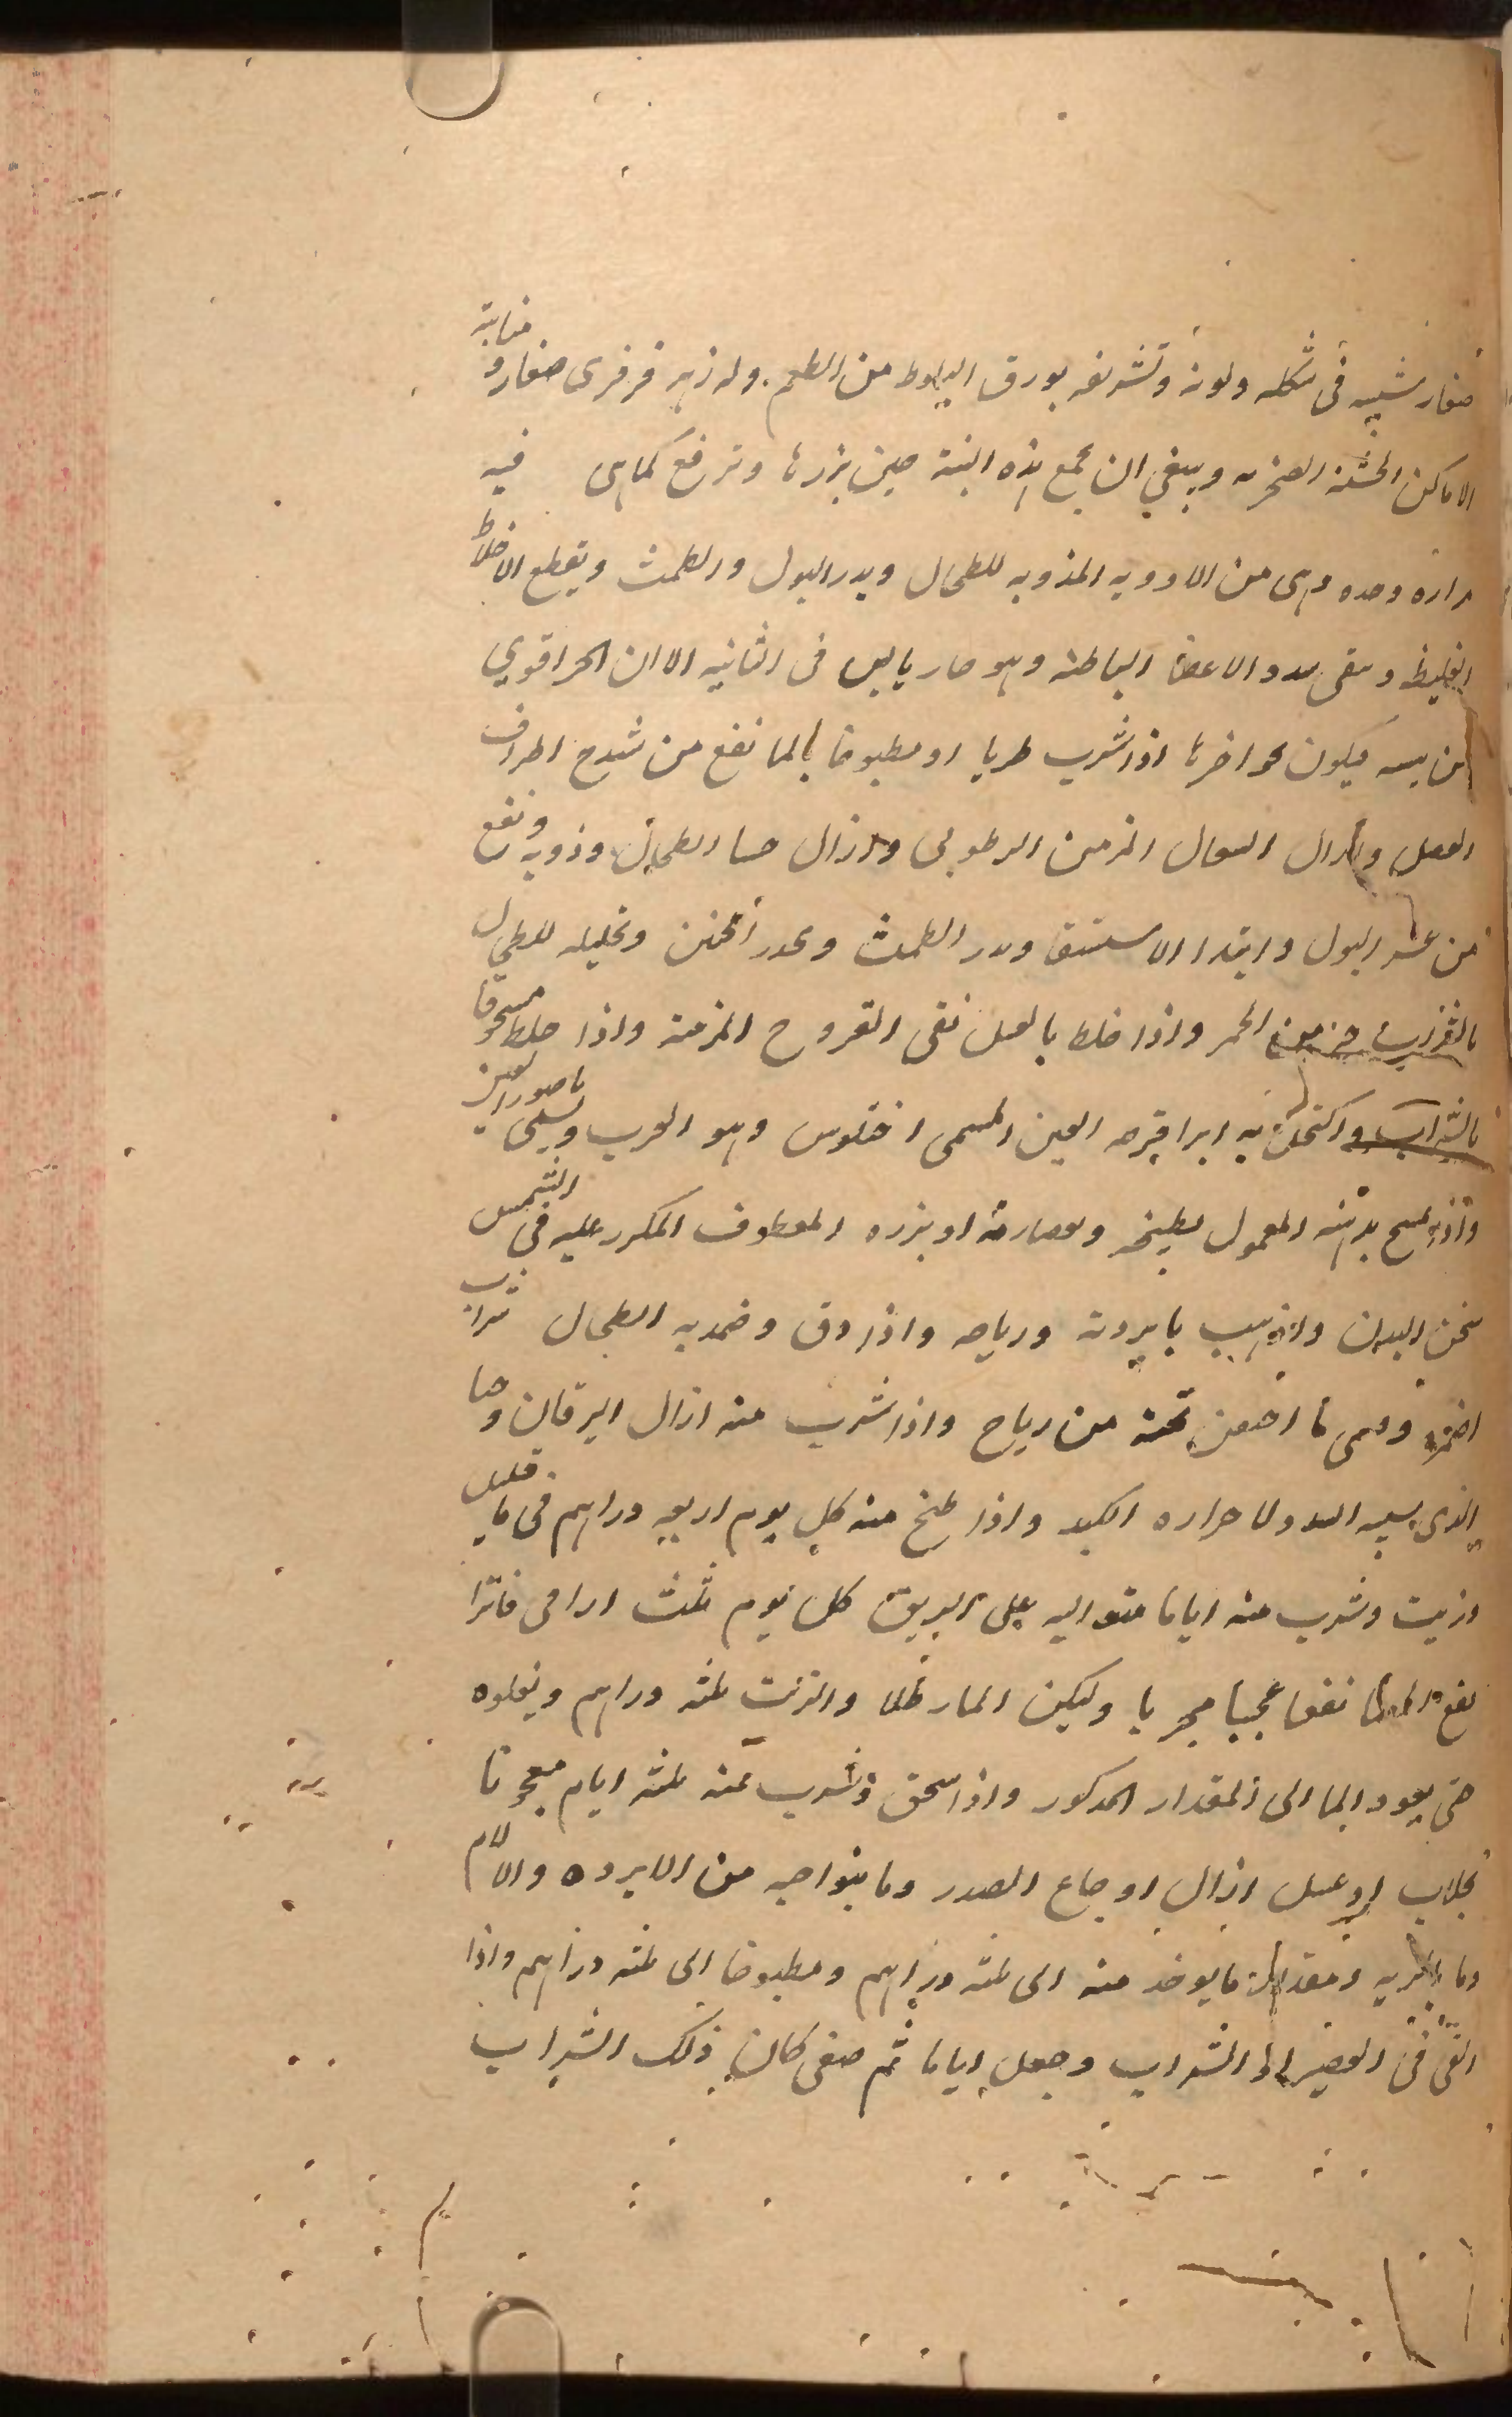 صغار شبيه فى شكله ولونه وتشريفه بورق البلوط من الطعم وله زهر فرفرى صغار و منابته
الاماكن الخشنه الصخريه وينبغي ان يجمع هذه النبتة حين بزرها وترفع كماهى فيه
مراره وحده وهى من الادويه المذوبه للطحال ويدر البول والطمث ويقطع الاخلاط
الغليظ وينقى سدد الاعضا الباطنه وهو حار يابس فى الثانيه الا ان الحر اقوي
من يبسه اذا شرب طريا او مطبوخا بالما نفع من شدخ اطراف
العضل وازال السعال المزمن الرطوبى وازال جسا الطحال وذوبه ونفع
من عسر البول وابتدا الاستسقا ويدر الطمث ويحدر الجنين وتحليله للطحال
الخمر واذا خلط بالعسل نقى القروح المزمنة واذا خلط مسحوقا
بالشراب واكتحل به ابرا قرحه العين المسمى وهو الغرب ويسمى ناصور العين
واذا مسح بدهنه المعمول بطبيخه وعصارته او بزره المعطوف المكرر عليه فى الشمس
سخن البدن واذهب بابردته ورياحه واذا دق وضمد به الطحال
اضمره تحته من رياح واذا شرب منه ازال اليرقان وحيا
الذى سببه السدد لا حراره الكبد واذا طبخ منه كل يوم اربعه دراهم فى ما قليل
وزيت وشرب منه اياما متواليه على الريق كل يوم ثلث اواقى فاترا
نفع نفعا عجيبا مجربا وليكن الما رطلا والزيت ثلثه دراهم ويغلوه
حتى يعود الما الى المقدار المدكور واذا سحق وشرب منه ثلثه ايام معجونا
بجلاب او عسل ازال اوجاع الصدر وما بنواحيه من الابرده والالام
ومقدار ما يوخد منه الى ثلثه دراهم ومطبوخا الى ثلثه دراهم واذا
القى فى العصير او الشراب وجعل اياما ثم صفى كان ذلك الشراب